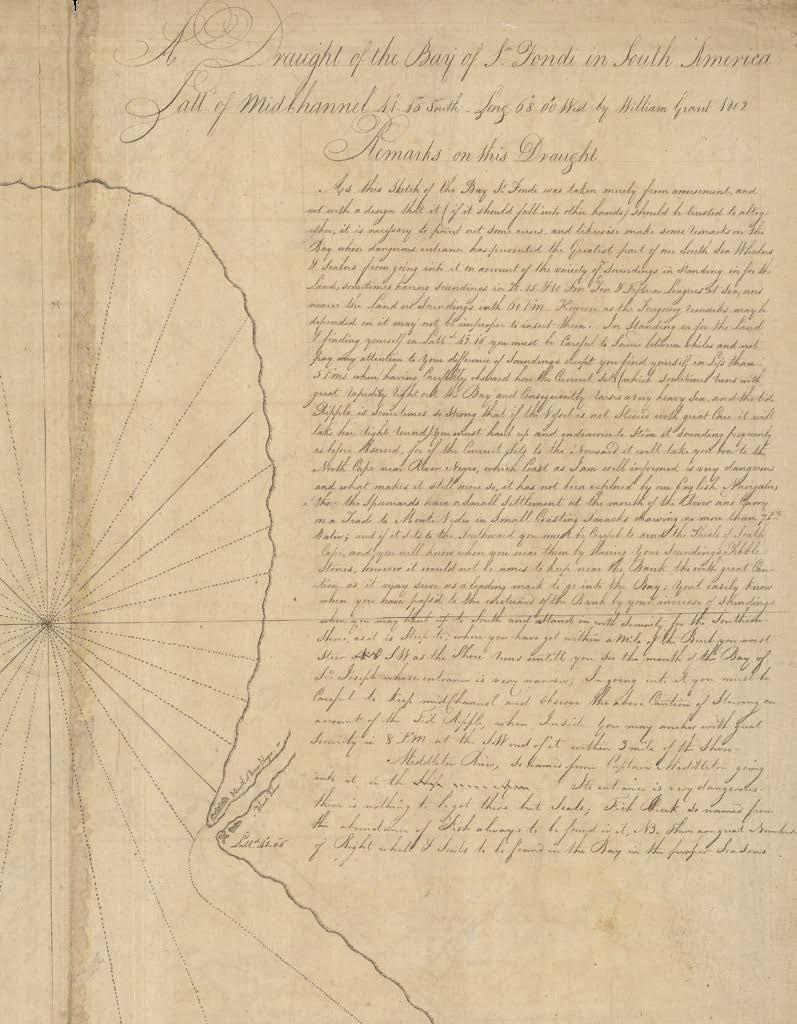 A Draught of the Bay of Sn. Fondi in South America
Lattd. of Midchannel 41-55 South - Long 68-00 West by William Grant 1812
Remarks on this Draught
As this Sketch of the Bay Sn. Fondi was taken merely from amusement, and
not with a design that it (if it should fall into other hands) should be trusted to altog-
-ether, it is necessary to point out some errors, and likewise make some remarks on this
Bay whose dangerous entrance has prevented the Greatest part of our South Sea Whalers
& Sealers from going into it on account of the variety of Soundings in Standing in for the
Land, sometimes having soundings in 15 Fm. Ten & Fifteen Leagues at Sea, and
nearer the land no Soundings with 60 FM. However as the Following remarks may be
depended on it may not be improper to insert them. In Standing in for the Land
& finding yourself in Lattd. you must be Careful to Sound between whiles and not
pay any attention to Your difference of Soundings except you find yourself in Less than
5 FMs when having Carefully observed how the Current sets (which sometimes runs with
great rapidity right out the Bay and Consequently raises a very heavy Sea, and the tide
Ripple is sometimes so Strong that if the Vessel is not Steered with great Care it will
take her right round) You must haul up and endeavour to Stem it Sounding frequently
as before observed, for if the Current Sets to the Norward it will take you over to the
North Cape near River Negro, which Coast as I am well informed is very dangerous
and what makes it still more so, it has not been explored by any English Navigator,
tho the Spaniards have a Small Settlement at the mouth of the River and Carry
on a Trade to Monte Vedio in Small Coasting Smacks drawing no more than 7 Ft.
Water; and if it Sets to the Southward you must be Careful to avoid the Shoals of South
Cape, and you will know when you near them by having Your Soundings Pebble
Stones, however it would not be amiss to keep near the Bank tho with great Cau-
-tion as it may serve as a leading mark to go into the Bay; You'll easily know
when you have pass'd to the westward of the Bank by your increase of Soundings
when you may haul up to South and Stand in with Security for the Southern
Shore, as it is Steep to; when you have got within a Mile of the Beach you must
Steer SW as the Shore runs untill you see the mouth of the Bay of
Sn. Joseph whose entrance is very narrow; In going into it you must be
Careful to keep midchannel and observe the above Caution of Steering on
account of the Tide Ripple, when Inside You may anchor with great
Security in 8 FM at the SW end of it within 3 mile of the Shore
Middleton River, so named from Captain Middleton going
into it in the Ship Its entrance is very dangerous
there is nothing to be got there but Seals; Fish Creek so named from
the abundance of Fish always to be found in it, NB. There are great Numbers
of Right whale & Seals to be found in the Bay in the proper Seasons
Lattd. 41-55